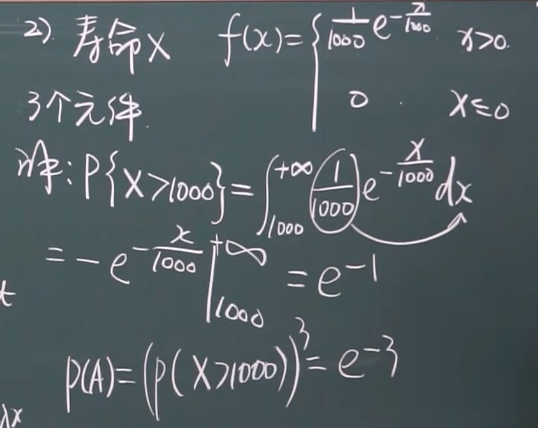 2). 寿命X f(x)={ 1/1000 e^{-x/1000} x>0.
0 . x≤0
3个元件.
解: P{X>1000}=∫_{1000}^{+∞} (1/1000) e^{-x/1000} dx
= -e^{-x/1000} |_{1000}^{+∞} = e^{-1}
t
P(A)=(P(X>1000))^3= e^{-3}
λx